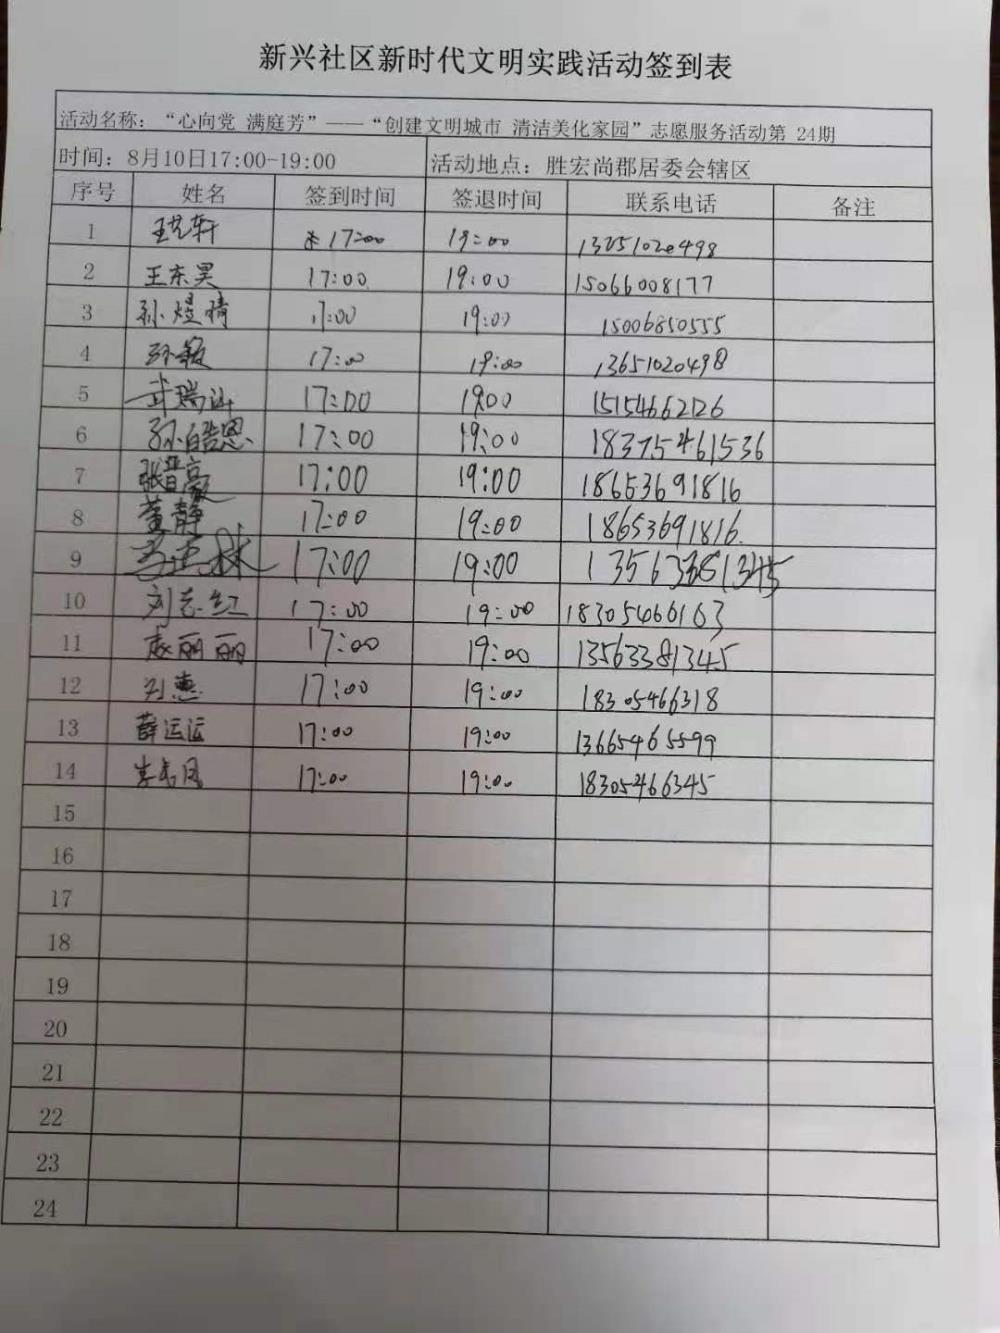 新兴社区新时代文明实践活动签到表
活动名称：“心向党 满庭芳”——“创建文明城市 清洁美化家园”志愿服务活动第 24期
时间：8月10日17:00-19:00 活动地点：胜宏尚郡居委会辖区
序号 姓名 签到时间 签退时间 联系电话 备注
1 17:00 19:00
2 王东昊 17:00 19:00 15066008177
3 孙煜晴 17:00 19:00 15006850555
4 孙毅 17:00 19:00 13651020498
5 17:00 19:00 15154662126
6 孙皓恩 17:00 19:00 18375461536
7 张晋豪 17:00 19:00 18653691816
8 董静 17:00 19:00 18653691816
9 17:00 19:00
10 刘志红 17:00 19:00 18305466163
11 丽丽 17:00 19:00 13563381345
12 刘惠 17:00 19:00 18305466318
13 薛运运 17:00 19:00 13665465599
14 17:00 19:00 18305466345
15
16
17
18
19
20
21
22
23
24